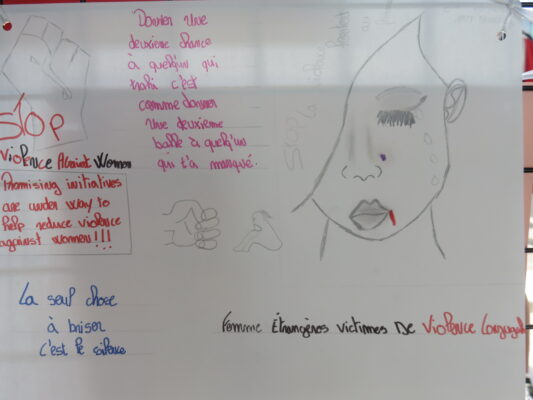 Donner une
deuxième chance
à quelqu'un qui
trahi c'est
comme donner
une deuxième
balle à quelqu'un
qui t'a manqué.
STOP
Violence Against Women
Promising initiatives
are under way to
help reduce violence
against women!!!
La seul chose
à briser
c'est le silence
Femme Étrangères victimes De Violence Conjugale